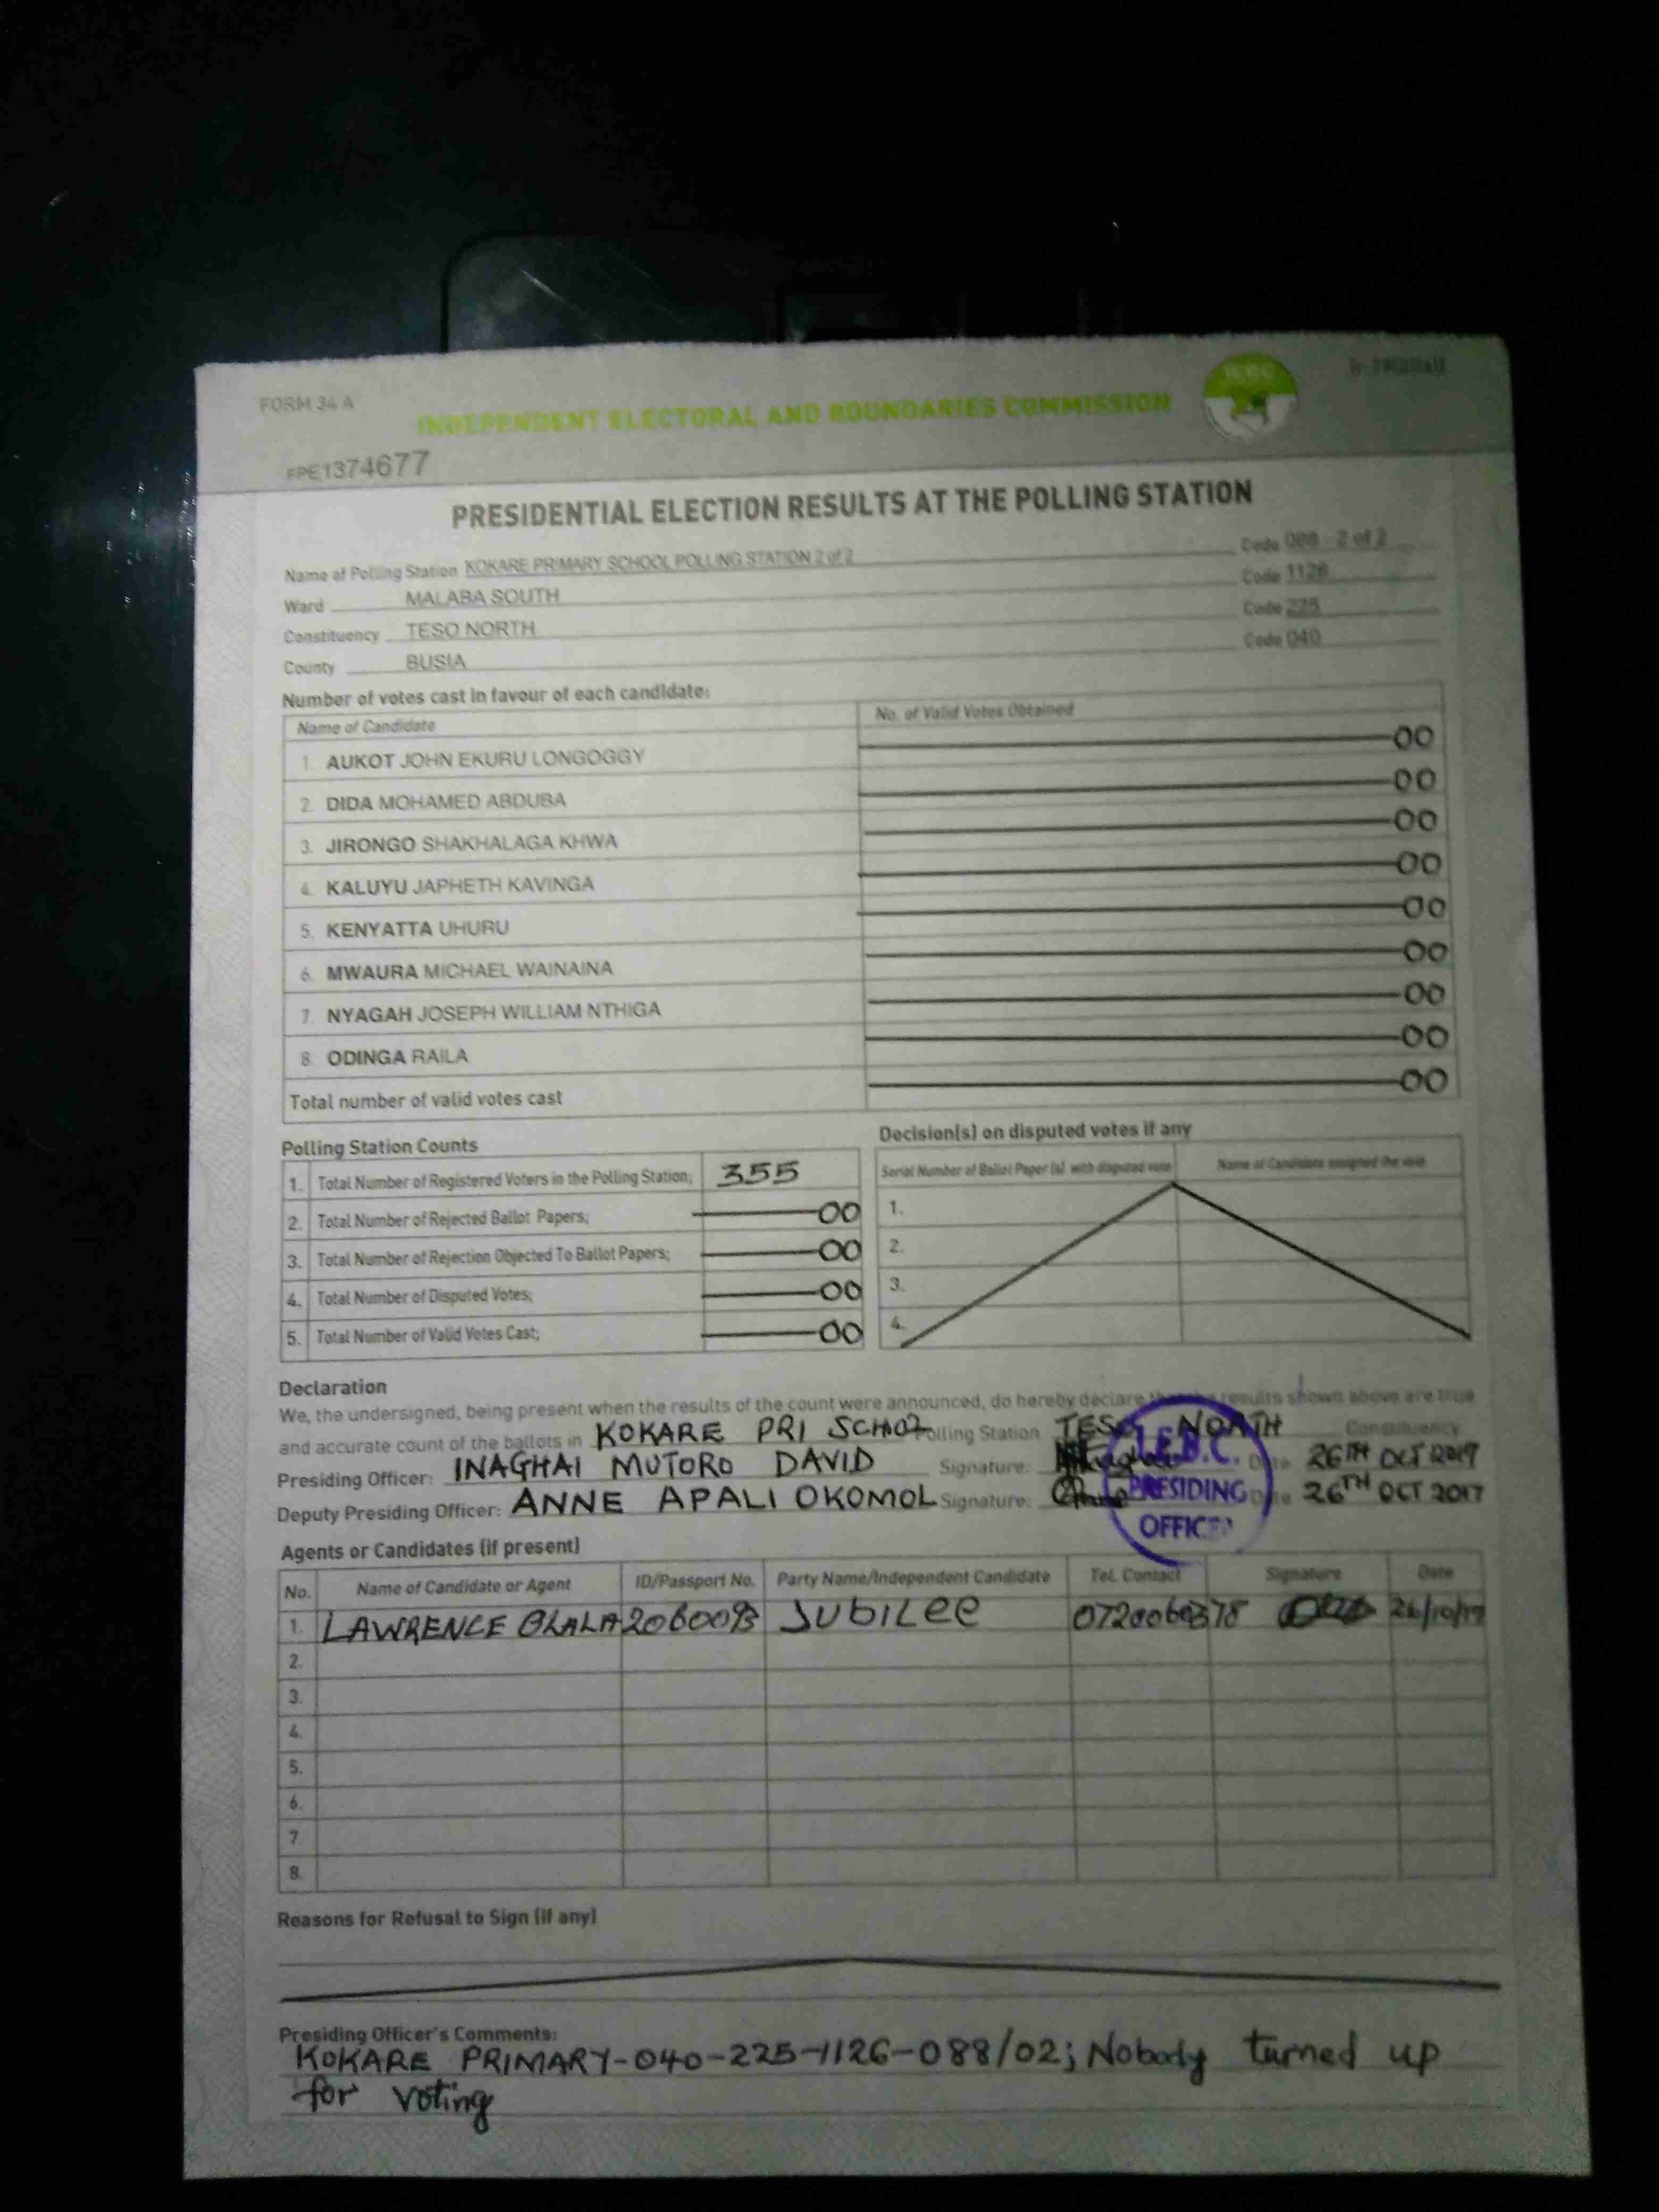 FORM 34 A
INDEPENDENT ELECTORAL AND BOUNDARIES COMMISSION
IEBC
FPE1374677
PRESIDENTIAL ELECTION RESULTS AT THE POLLING STATION
Name of Polling Station KOKARE PRIMARY SCHOOL POLLING STATION 2 of 2 Code 088 - 2 of 2
Ward MALABA SOUTH Code 1126
Constituency TESO NORTH Code 225
County BUSIA Code 040
Number of votes cast in favour of each candidate:
Name of Candidate No. of Valid Votes Obtained
1. AUKOT JOHN EKURU LONGOGGY 00
2. DIDA MOHAMED ABDUBA 00
3. JIRONGO SHAKHALAGA KHWA 00
4. KALUYU JAPHETH KAVINGA 00
5. KENYATTA UHURU 00
6. MWAURA MICHAEL WAINAINA 00
7. NYAGAH JOSEPH WILLIAM NTHIGA 00
8. ODINGA RAILA 00
Total number of valid votes cast 00
Polling Station Counts
1. Total Number of Registered Voters in the Polling Station; 355
2. Total Number of Rejected Ballot Papers; 00
3. Total Number of Rejection Objected To Ballot Papers; 00
4. Total Number of Disputed Votes; 00
5. Total Number of Valid Votes Cast; 00
Decision(s) on disputed votes if any
Serial Number of Ballot Paper (s) with disputed vote Name of Candidate assigned the vote
1.
2.
3.
4.
Declaration
We, the undersigned, being present when the results of the count were announced, do hereby declare that the results shown above are true
and accurate count of the ballots in KOKARE PRI SCHOOL Polling Station TESO NORTH Constituency
Presiding Officer: INAGHAI MUTORO DAVID Signature: Date 26TH OCT
Deputy Presiding Officer: ANNE APALI OKOMOL Signature: Date 26TH OCT 2017
I.E.B.C.
PRESIDING
OFFICER
Agents or Candidates (if present)
No. Name of Candidate or Agent ID/Passport No. Party Name/Independent Candidate Tel. Contact Signature Date
1. LAWRENCE JUBILEE 26/10/17
2.
3.
4.
5.
6.
7.
8.
Reasons for Refusal to Sign (if any)
Presiding Officer's Comments:
KOKARE PRIMARY-040-225-1126-088/02; Nobody turned up
for voting